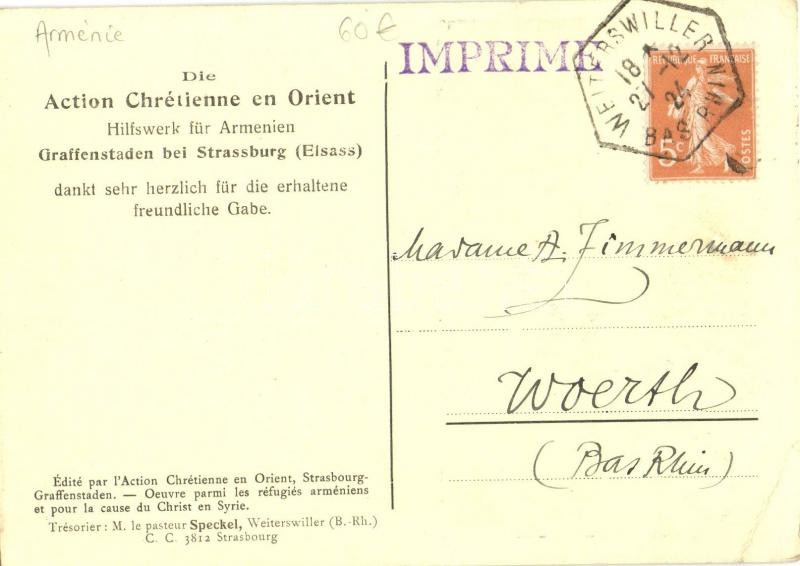 Arménie
60 €
Die
Action Chrétienne en Orient
Hilfswerk für Armenien
Graffenstaden bei Strassburg (Elsass)
dankt sehr herzlich für die erhaltene
freundliche Gabe.
IMPRIME
WEITERSWILLER
18
27 - 2
24
BAS RHIN
REPUBLIQUE FRANÇAISE
5c
POSTES
Madame A. Zimmermann
Woerth
(Bas Rhin)
Édité par l'Action Chrétienne en Orient, Strasbourg-
Graffenstaden. — Oeuvre parmi les réfugiés arméniens
et pour la cause du Christ en Syrie.
Trésorier : M. le pasteur Speckel, Weiterswiller (B.-Rh.)
C. C. 3812 Strasbourg